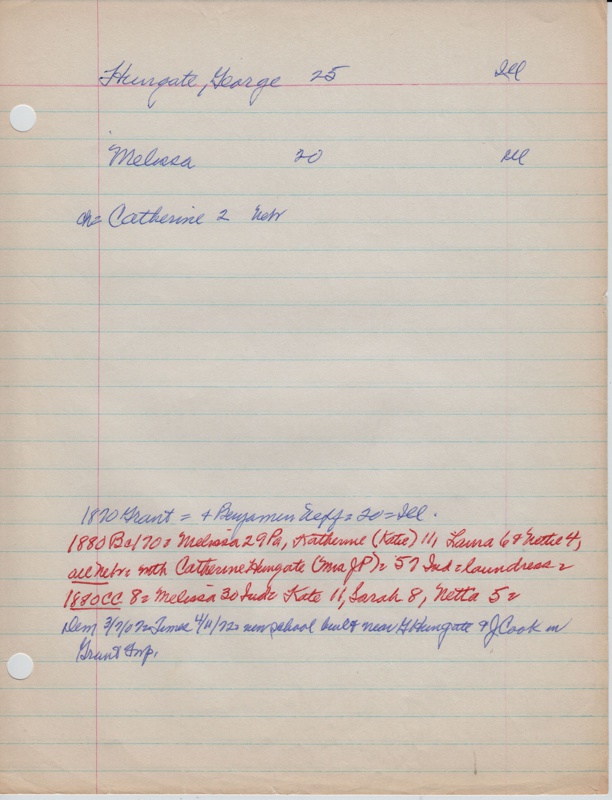 Hungate, George 25 Ill
Melissa 20 Ill
ch= Catherine 2 Nebr
1870 Grant = + Benjamin = 20 = Ill.
1880 Ba170 = Melissa 29 Pa, Katherine (Kate) 11, Laura 6 & Nettie 4,
all Nebr = with Catherine Hungate (Mrs JP) = 57 Ind = laundress =
1880CC 8 = Melissa 30 Ind = Kate 11, Sarah 8, Netta 5 =
Dem Times 4/11/72 = new school built near G Hungate & J Cook in
Grant Twp.